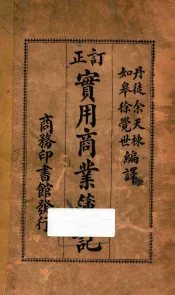 丹徒余天棟
如皋徐覺世
編譯
訂正
實用商業簿記
商務印書館發行